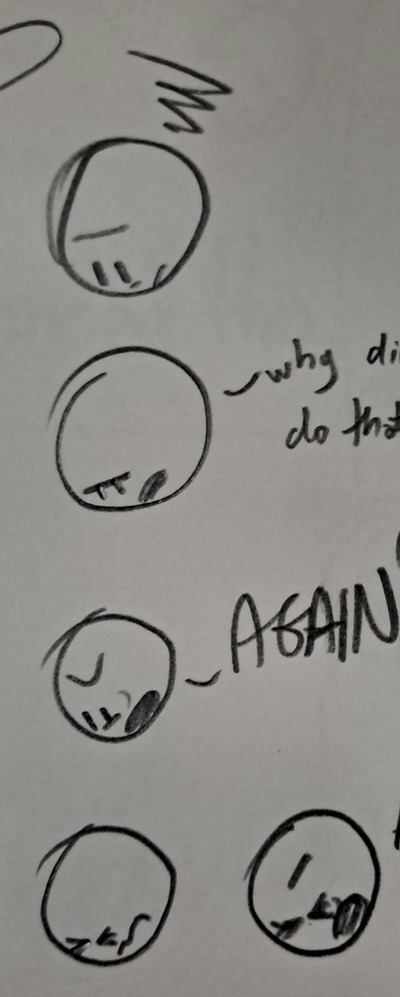 why di
do that
AGAIN